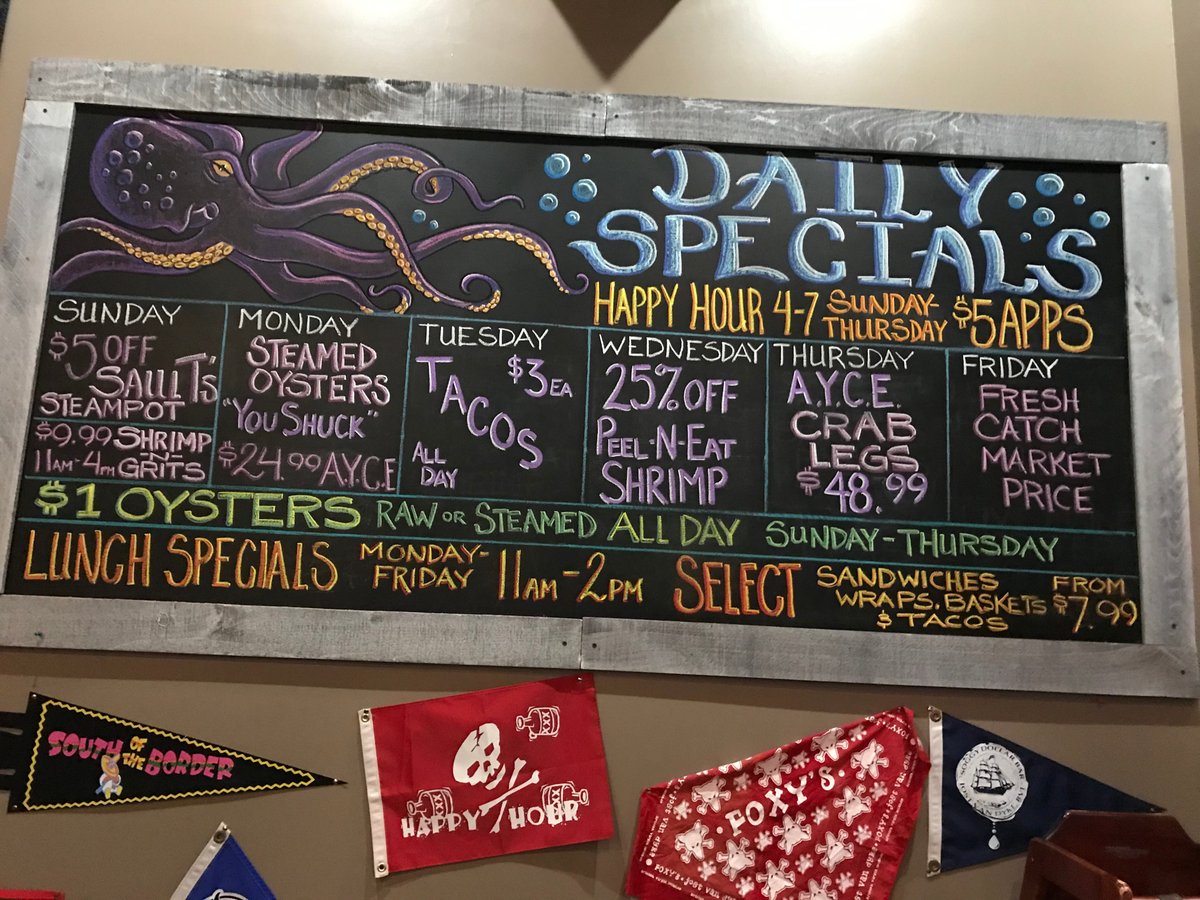 DAILY
SPECIALS
HAPPY HOUR 4-7 SUNDAY-THURSDAY $5 APPS
SUNDAY
$5 OFF
SAULT'S
STEAMPOT
$9.99 SHRIMP
-N-
11AM-4PM GRITS
MONDAY
STEAMED
OYSTERS
"YOU SHUCK"
$24.99 A.Y.C.E
TUESDAY
TACOS
$3 EA
ALL
DAY
WEDNESDAY
25% OFF
PEEL-N-EAT
SHRIMP
THURSDAY
A.Y.C.E.
CRAB
LEGS
$48.99
FRIDAY
FRESH
CATCH
MARKET
PRICE
$1 OYSTERS RAW OR STEAMED ALL DAY SUNDAY-THURSDAY
LUNCH SPECIALS MONDAY-FRIDAY 11AM-2PM SELECT SANDWICHES WRAPS, BASKETS $ TACOS FROM $7.99
SOUTH OF THE BORDER
XXX
XX
XX
HAPPY HOUR
FOXY'S
SOGGY DOLLAR BAR